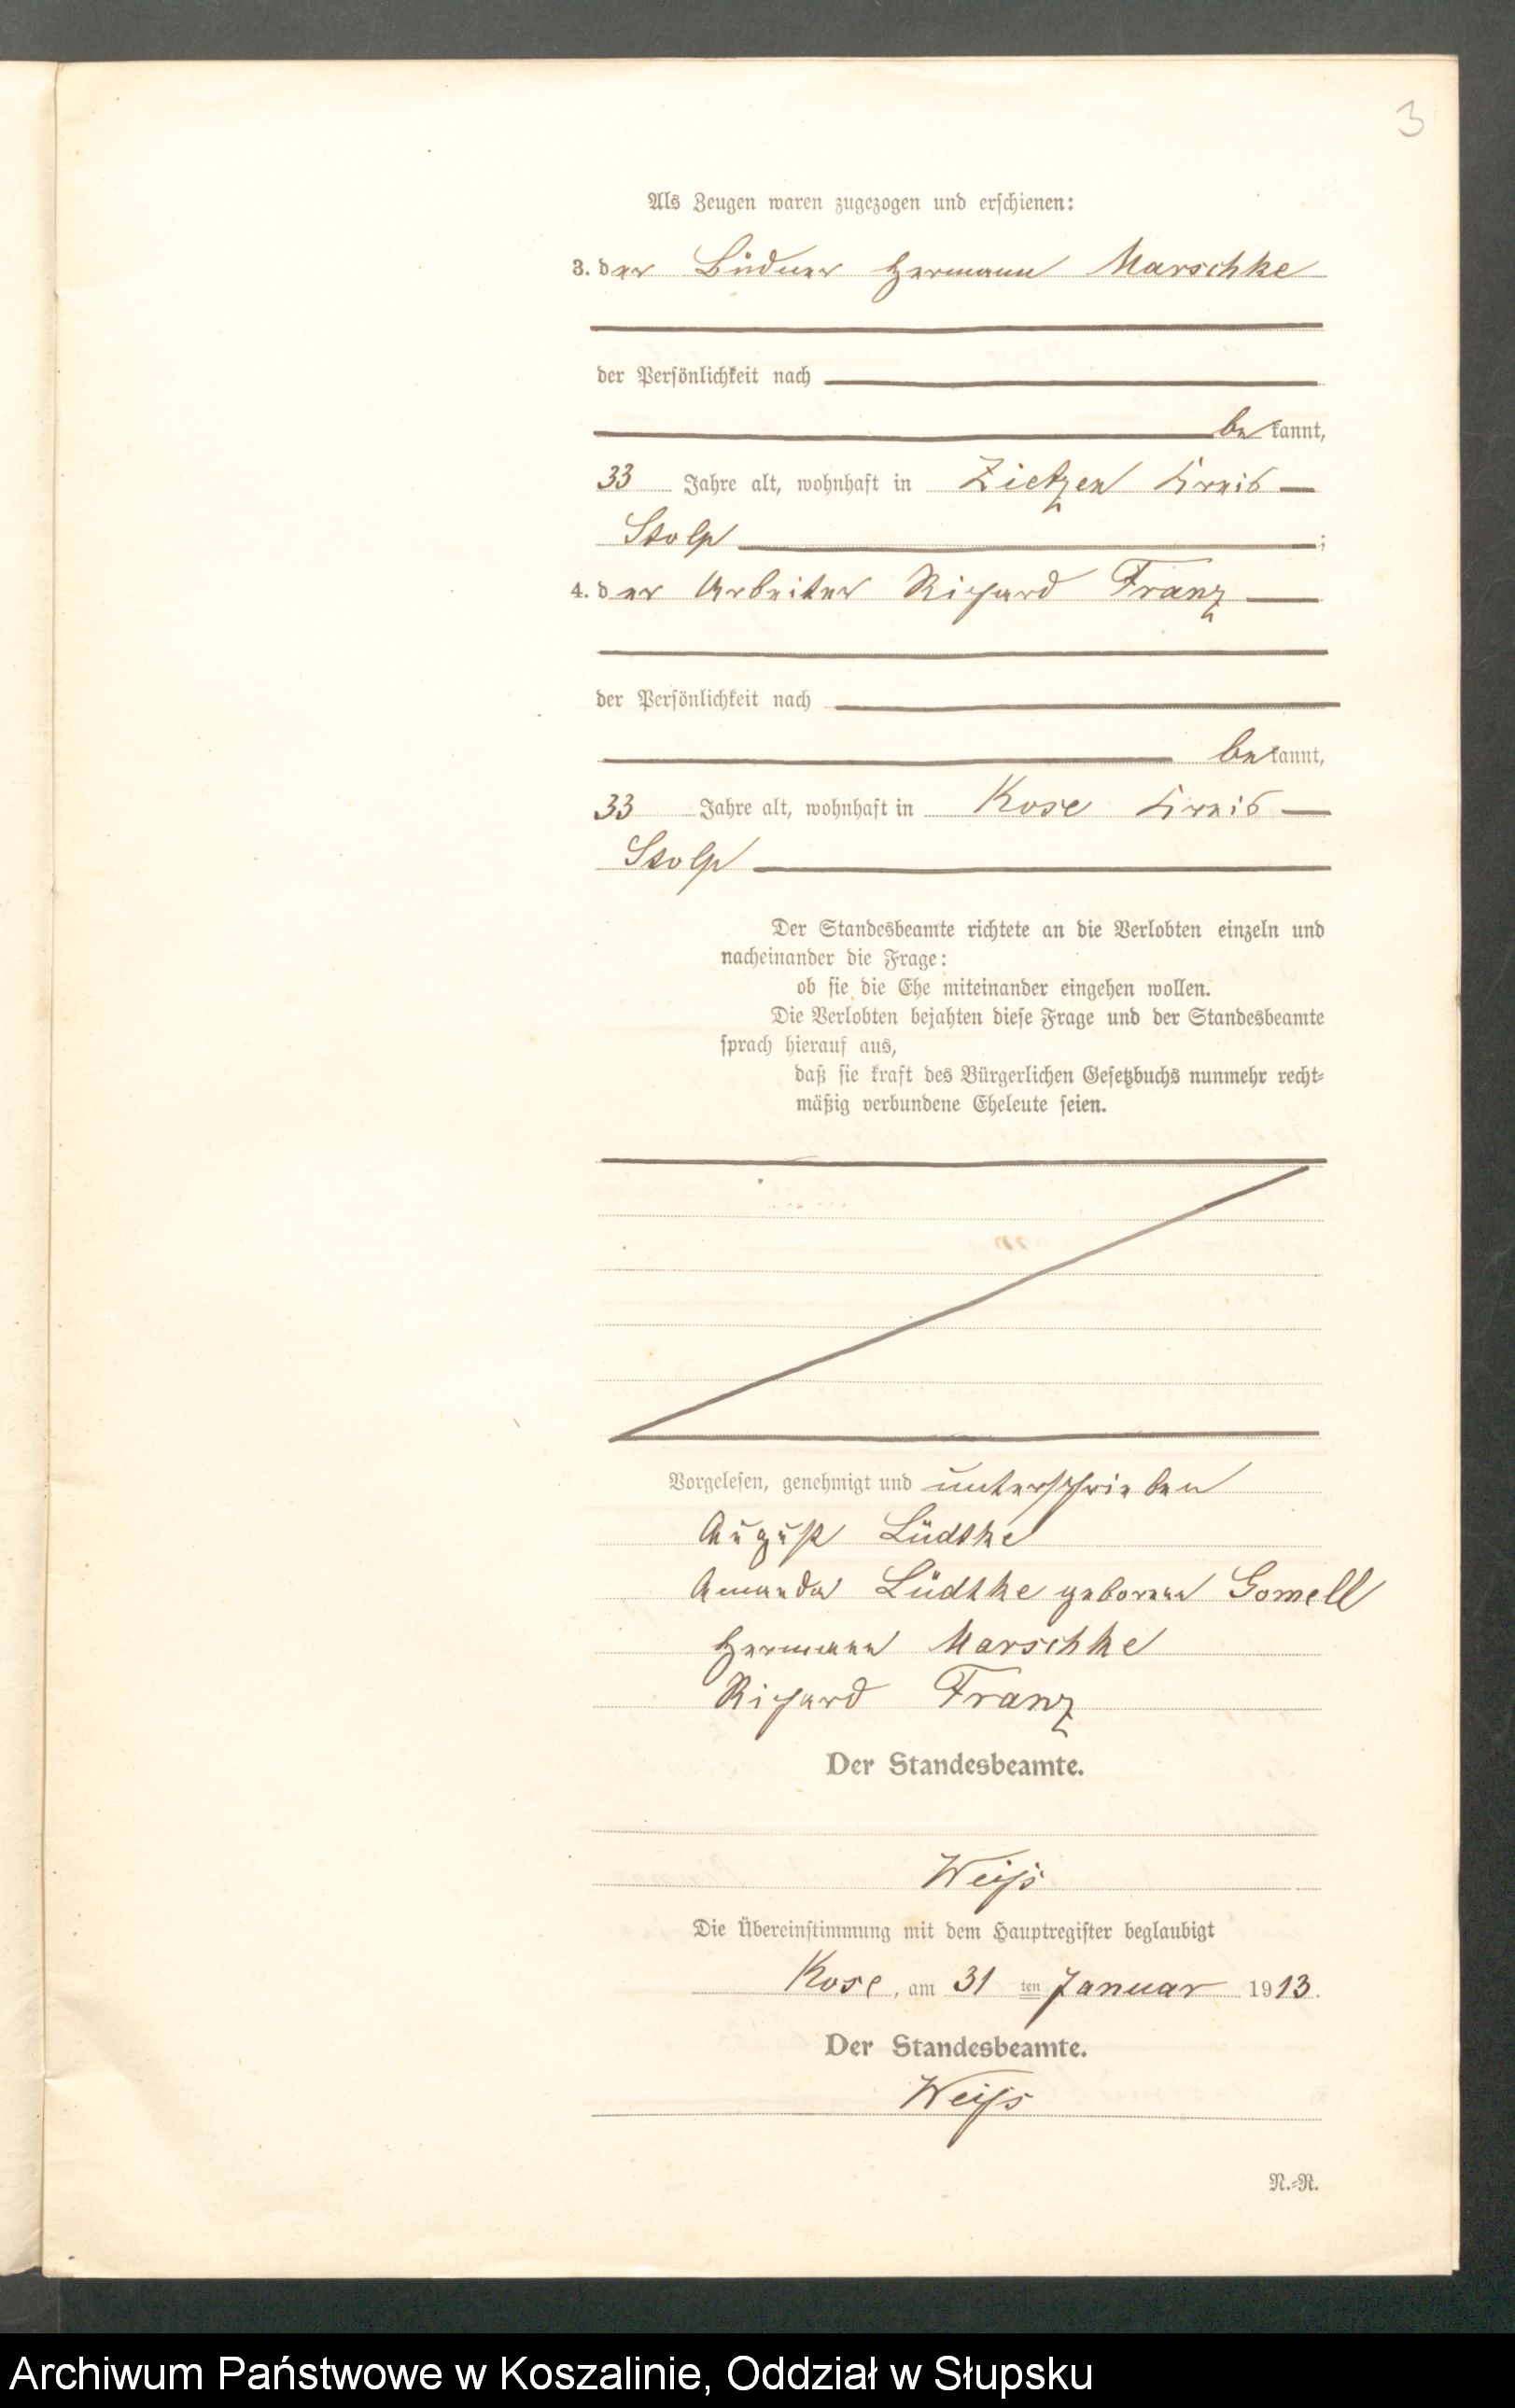 3
Als Zeugen waren zugezogen und erschienen:
3. der Büdner Hermann Marschke
der Persönlichkeit nach
bekannt,
33 Jahre alt, wohnhaft in Zietzen Kreis
Stolp ;
4. der Arbeiter Richard Franz
der Persönlichkeit nach
bekannt,
33 Jahre alt, wohnhaft in Kose Kreis
Stolp
Der Standesbeamte richtete an die Verlobten einzeln und
nacheinander die Frage:
ob sie die Ehe miteinander eingehen wollen.
Die Verlobten bejahten diese Frage und der Standesbeamte
sprach hierauf aus,
daß sie kraft des Bürgerlichen Gesetzbuchs nunmehr recht-
mäßig verbundene Eheleute seien.
Vorgelesen, genehmigt und unterschrieben
August Lüdtke
Amanda Lüdtke geborene Gomell
Hermann Marschke
Richard Franz
Der Standesbeamte.
Weiß
Die Übereinstimmung mit dem Hauptregister beglaubigt
Kose, am 31 ten Januar 1913.
Der Standesbeamte.
Weiß
N.-R.
Archiwum Państwowe w Koszalinie, Oddział w Słupsku